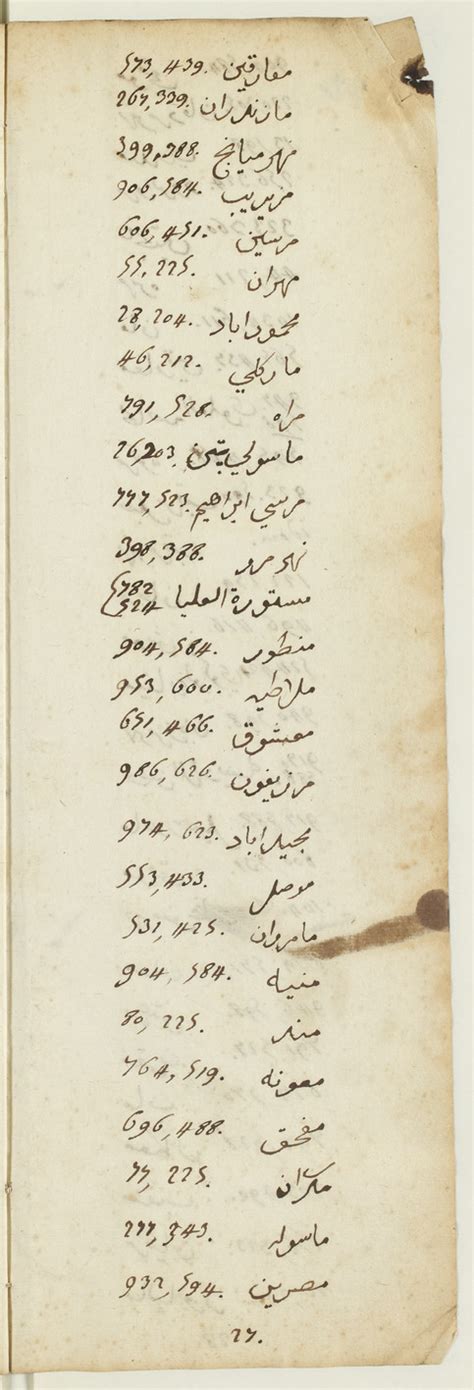 مفارقين 573, 439.
مازندران 267, 339.
نهر ميانج 399, 388.
مزيريب 906, 584.
مرسين 606, 451.
مهران 55, 225.
محموداباد 28, 204.
ماركلي 46, 212.
مراه 791, 528.
ماسولي 26203.
مرسي ابراهيم 777, 523.
نهر مرد 398, 388.
مستورة العليا 782 524
منطور 904, 584.
ملاطيه 953, 600.
معشوق 651, 466.
مرزيفون 986, 626.
مجيداباد 974, 623.
موصل 553, 433.
مامروان 531, 425.
منيه 904, 584.
مند 80, 225.
معونه 764, 519.
مفحق 696, 488.
مكران 77, 225.
ماسوله 277, 343.
مصرين 932, 594.
27.